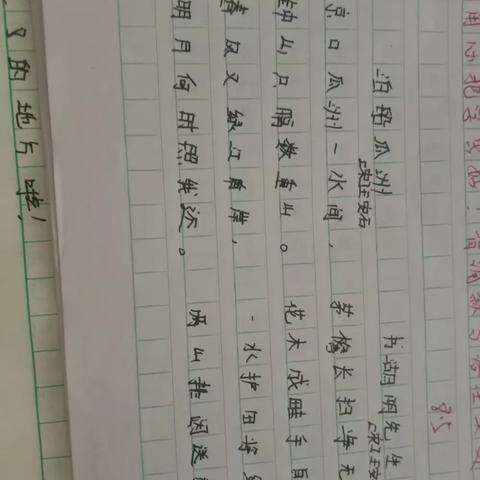 用心把字写好!
8.5
泊船瓜洲
[宋]王安石
京口瓜洲一水间,
钟山只隔数重山。
春风又绿江南岸,
明月何时照我还。
书湖阴先生
[宋]王安
茅檐长扫净无
花木成畦手自
一水护田将
两山排闼送
的地方啦!